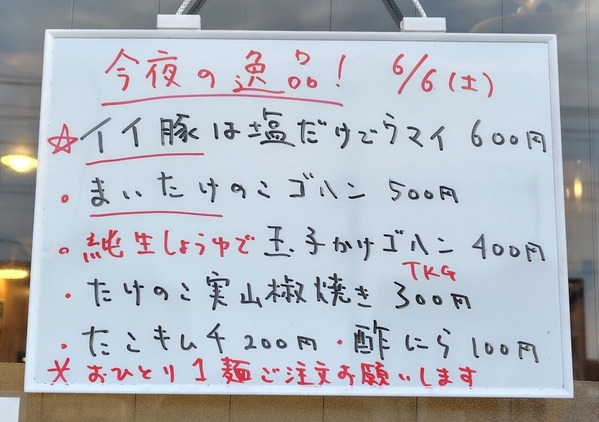 今夜の逸品! 6/6(土)
☆イイ豚は塩だけでウマイ 600円
・まいたけのこゴハン 500円
・純生しょうゆで玉子かけゴハン 400円
TKG
・たけのこ実山椒焼き 300円
・たこキムチ200円・酢にら100円
※おひとり1麺ご注文お願いします